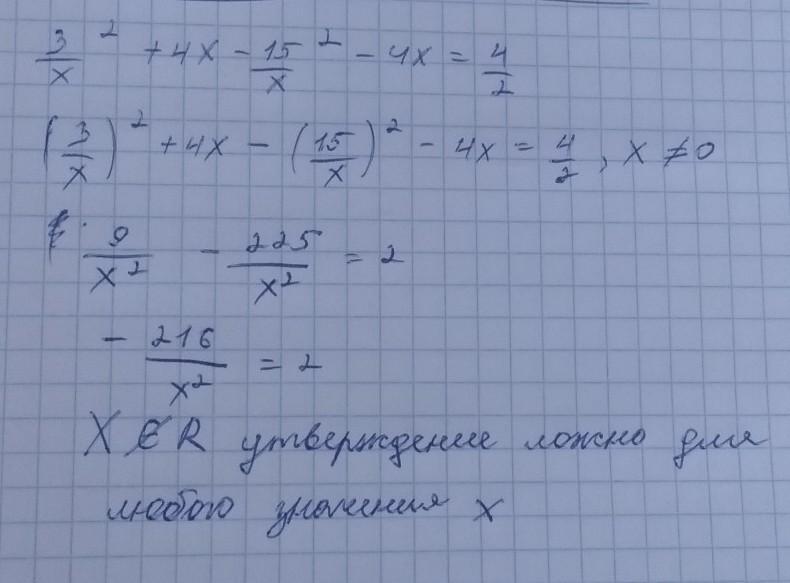 3/x ² + 4x - 15/x ² - 4x = 4/2
(3/x)² + 4x - (15/x)² - 4x = 4/2, x ≠ 0
9/x² - 225/x² = 2
- 216/x² = 2
X ∉ R утверждение ложно для
любого значения x